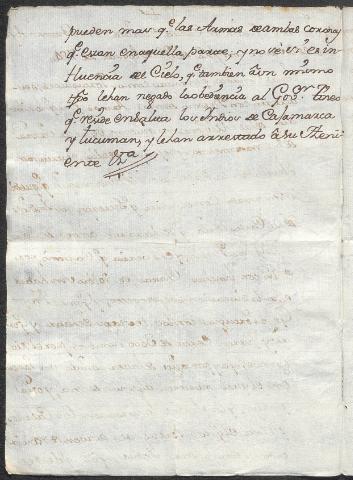 pueden mas q.e las Armas de ambas coronas
q.e estan en aquella parte; y no se si es in-
fluencia de el Cielo, q.e tambien à un mismo
tpo le han negado la obediencia al Gov.r
q.e reside en Salta los Indios de Cajamarca
y tucuman, y le han arrestado à su Theni
ente &a